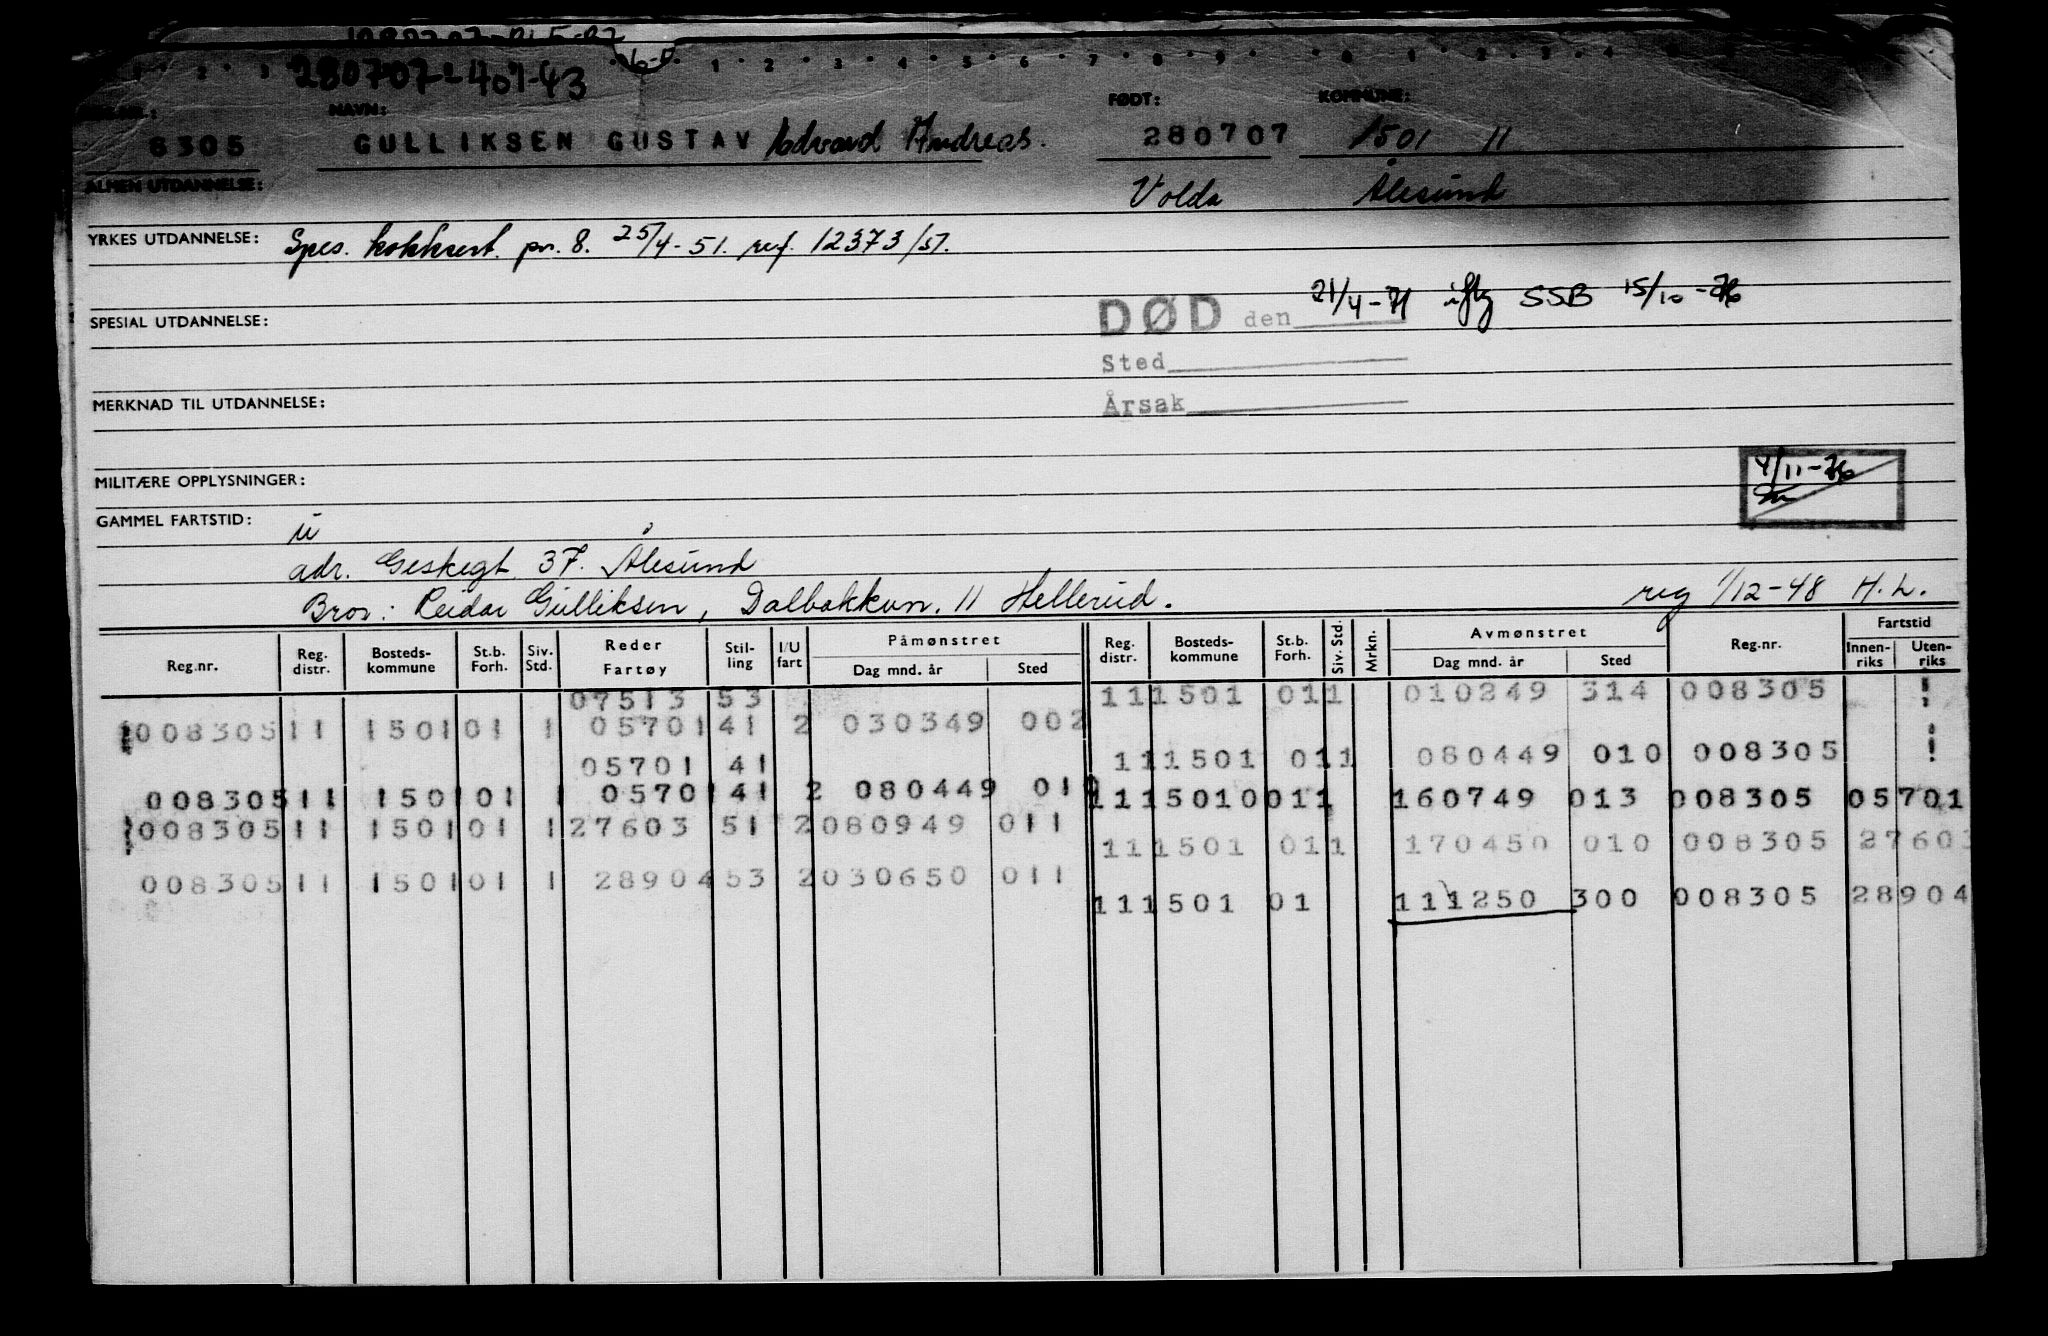 280707-40743
NAVN: FØDT: KOMMUNE:
8305 GULLIKSEN GUSTAV Edvard Andreas. 280707 1501 11
ALMEN UTDANNELSE: Volda Ålesund
YRKES UTDANNELSE: Spes. kokksert. pr. 8. 25/4-51. ref. 12373/51.
DØD den 21/4-71 iflg SSB 15/10-76
SPESIAL UTDANNELSE:
Sted
MERKNAD TIL UTDANNELSE: Årsak
MILITÆRE OPPLYSNINGER: 4/11-76
GAMMEL FARTSTID: u
adr. Geskegt. 37. Ålesund
Bror: Reidar Gulliksen, Dalbakkvn. 11 Hellerud. reg 1/12-48 H.L.
Reg.nr. Reg. distr. Bosteds-kommune St.b. Forh. Siv. Std. Reder Fartøy Stil-ling I/U fart Påmønstret Dag mnd. år Sted Reg. distr. Bosteds-kommune St.b. Forh. Siv. Std. Mrkn. Avmønstret Dag mnd. år Sted Reg.nr. Fartstid Innen-riks Uten-riks
07513 53 11 1501 01 1 010249 314 008305
008305 11 1501 01 1 05701 41 2 030349 002
05701 41 11 1501 01 1 080449 010 008305
008305 11 1501 01 1 05701 41 2 080449 010 11 15010 01 1 160749 013 008305 05701
008305 11 1501 01 1 27603 51 2 080949 011
11 1501 01 1 170450 010 008305 27603
008305 11 1501 01 1 28904 53 2 030650 011
11 1501 01 111250 300 008305 28904